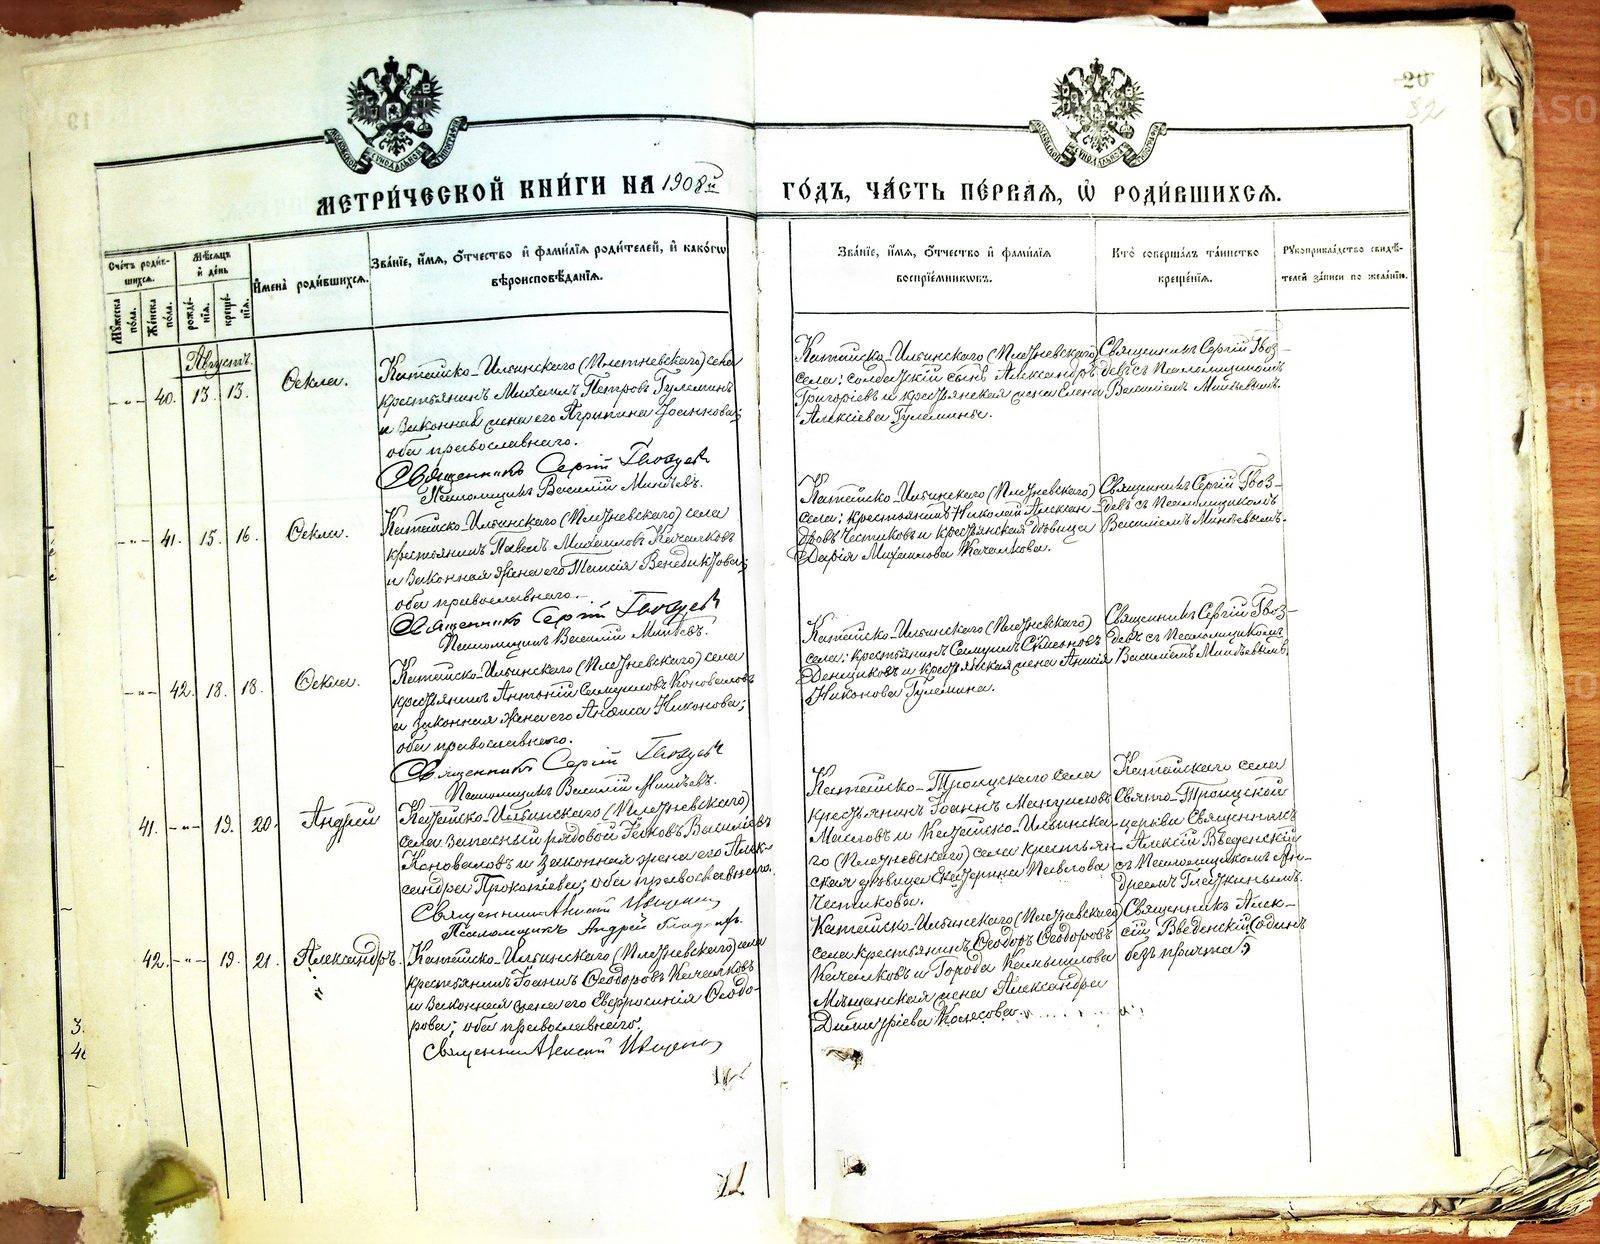 20
32
МЕТРИ́ЧЕСКОЙ КНИ́ГИ НА 1908й ГО́ДЪ, ЧА́СТЬ ПЕ́РВАЯ, Ѽ РОДИ́ВШИХСЯ.
Сче́тъ роди́в-
шихся.
Мꙋ́жеска по́ла.
Же́нска по́ла.
Мѣ́сяцъ и де́нь
рожде́-
нія.
креще́-
нія.
Имена̀ роди́вшихся.
Зва́ніе, и́мя, ѻ́тчество и фами́лія роди́телей, и како́гѡ
вѣроисповѣ́данія.
Зва́ніе, и́мя, ѻ́тчество и фами́лія
воспріе́мникѡвъ.
Кто̀ соверша́лъ та́инство
креще́нія.
Рꙋкоприкла́дство свидѣ́-
телей за́писи по жела́нію.
Августъ.
-"- 40. 13. 13. Ѳекла.
Катайско-Ильинскаго (Плетневскаго) села
крестьянинъ Михаилъ Петровъ Гулеминъ
и законная жена его Агрипина Іоаннова;
оба православнаго.
Священникъ Сергій Гвоздевъ
Псаломщикъ Василій Минѣевъ.
Катайско-Ильинскаго (Плетневскаго)
села: солдатскій сынъ Александръ
Григорьевъ и крестьянская жена Елена
Алексіева Гулемины.
Священникъ Сергій Гвоз-
девъ съ Псаломщикомъ
Василіемъ Минѣевымъ.
-"- 41. 15. 16. Ѳекла.
Катайско-Ильинскаго (Плетневскаго) села
крестьянинъ Павелъ Михаиловъ Качалковъ
и законная жена его Таисія Венедиктова;
оба православнаго.
Священникъ Сергій Гвоздевъ
Псаломщикъ Василій Минѣевъ.
Катайско-Ильинскаго (Плетневскаго)
села: крестьянинъ Николай Алексан-
дровъ Честиковъ и крестьянская дѣвица
Дарія Михаилова Качалкова.
Священникъ Сергій Гвоз-
девъ съ Псаломщикомъ
Василіемъ Минѣевымъ.
-"- 42. 18. 18. Ѳекла.
Катайско-Ильинскаго (Плетневскаго) села
крестьянинъ Антоній Самуиловъ Коноваловъ
и законная жена его Анѳиса Никонова;
оба православнаго.
Священникъ Сергій Гвоздевъ
Псаломщикъ Василій Минѣевъ.
Катайско-Ильинскаго (Плетневскаго)
села: крестьянинъ Самуилъ Симеоновъ
Денщиковъ и крестьянская жена Анисія
Никонова Гулемина.
Священникъ Сергій Гвоз-
девъ съ Псаломщикомъ
Василіемъ Минѣевымъ
41. -"- 19. 20. Андрей
Катайско-Ильинскаго (Плетневскаго)
села запасный рядовой Іаковъ Василіевъ
Коноваловъ и законная жена его Алек-
сандра Прокопіева; оба православнаго.
Священникъ Алексій Введенскій
Псаломщикъ Андрей
Катайско-Троицскаго села
крестьянинъ Іоаннъ
Масловъ и Катайско-Ильинска-
го (Плетневскаго) села крестьян-
ская дѣвица Екатерина Павлова
Честикова.
Катайскаго села
Свято-Троицской
церкви Священникъ
Алексій Введенскій
съ Псаломщикомъ Ан-
дреемъ
42. -"- 19. 21. Александръ.
Катайско-Ильинскаго (Плетневскаго) села
крестьянинъ Іоаннъ Ѳеодоровъ Качалковъ
и законная жена его Евфросинія Ѳеодо-
рова; оба православнаго.
Священникъ Алексій Введенскій
Катайско-Ильинскаго (Плетневскаго)
села крестьянинъ Ѳеодоръ Ѳеодоровъ
Качалковъ и города Камышлова
Мѣщанская жена Александра
Димитріева Колясова.
Священникъ Алек-
сій Введенскій (одинъ
безъ причта.)